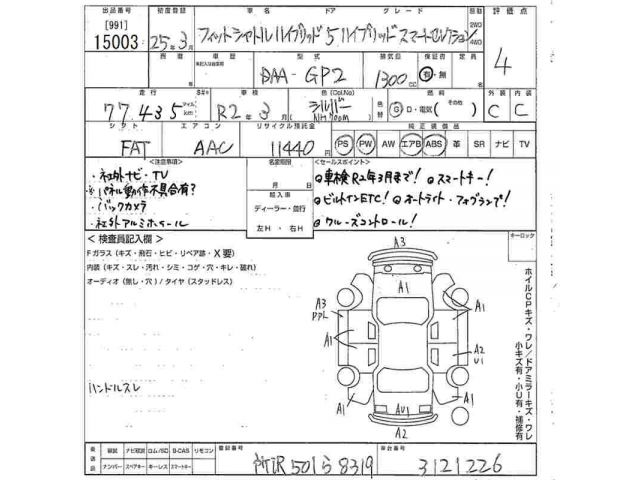 出品番号 初度登録 車名 ドア グレード 駆動 評価点
[991]
15003 25年3月 フィットシャトルハイブリッド 5 ハイブリッドスマートセレクション 2WD 4WD 4
車歴 型式 排気量 保証書 定員
DAA-GP2 1300cc 有・無
走行 車検 色(Col.No) 燃料 外装 内装
77,435 km R2年3月 シルバー NH700m 色替 G・D・電気(その他) C C
シフト エアコン リサイクル預託金 純正装備品
FAT AAC 11440 PS PW AW エアB ABS 革 SR ナビ TV
<注意事項>
・社外ナビ・TV
パネル動作不具合有?
・バックカメラ
・社外アルミホイール
名変期限
月 日
輸入車
ディーラー・並行
左H ・ 右H
<セールスポイント>
車検R2年3月まで! スマートキー!
ビルトインETC! オートライト・フォグランプ!
クルーズコントロール!
<検査員記入欄>
Fガラス(キズ・飛石・ヒビ・リペア跡・X要)
内装(キズ・スレ・汚れ・シミ・コゲ・穴・キレ・破れ)
オーディオ(無し・穴)/タイヤ(スタッドレス)
ハンドルスレ
キーロック
A3
A1
A3
PPL
A1
A1
A1
A2
U1
A1
AU1
A1
A2
ホイルCPキズ・ワレ/ドアミラーキズ・ワレ
小キズ有・小U有・補修有
車両番号 車台番号
501 ら 8319 3121226